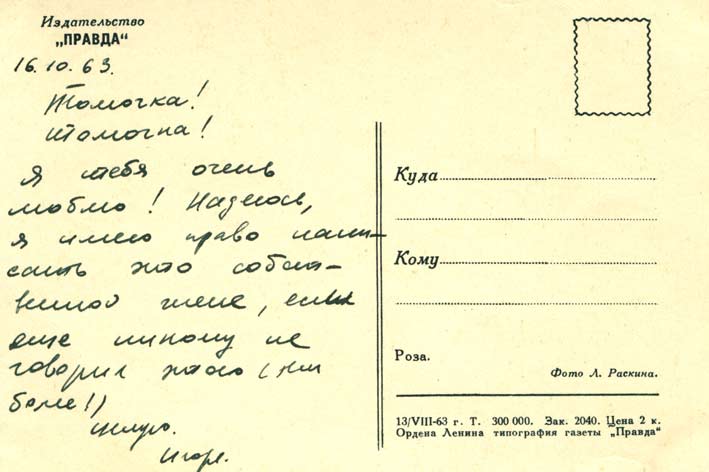 Издательство
„ПРАВДА“
16.10.63.
Томочка!
Томочка!
Я тебя очень
люблю! Надеюсь,
я имею право напи-
сать это собст-
венной жене, если
еще никому не
говорил этого (ни
боме!)
Целую.
Игорь.
Куда
Кому
Роза.
Фото Л. Раскина.
13/VIII-63 г. Т. 300 000. Зак. 2040. Цена 2 к.
Ордена Ленина типография газеты „Правда“